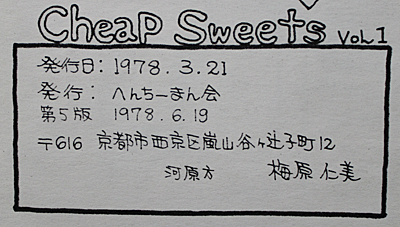 Cheap Sweets Vol.1
発行日: 1978.3.21
発行: へんちーまん会
第5版 1978.6.19
〒616 京都市西京区嵐山谷ヶ辻子町12
河原方 梅原仁美